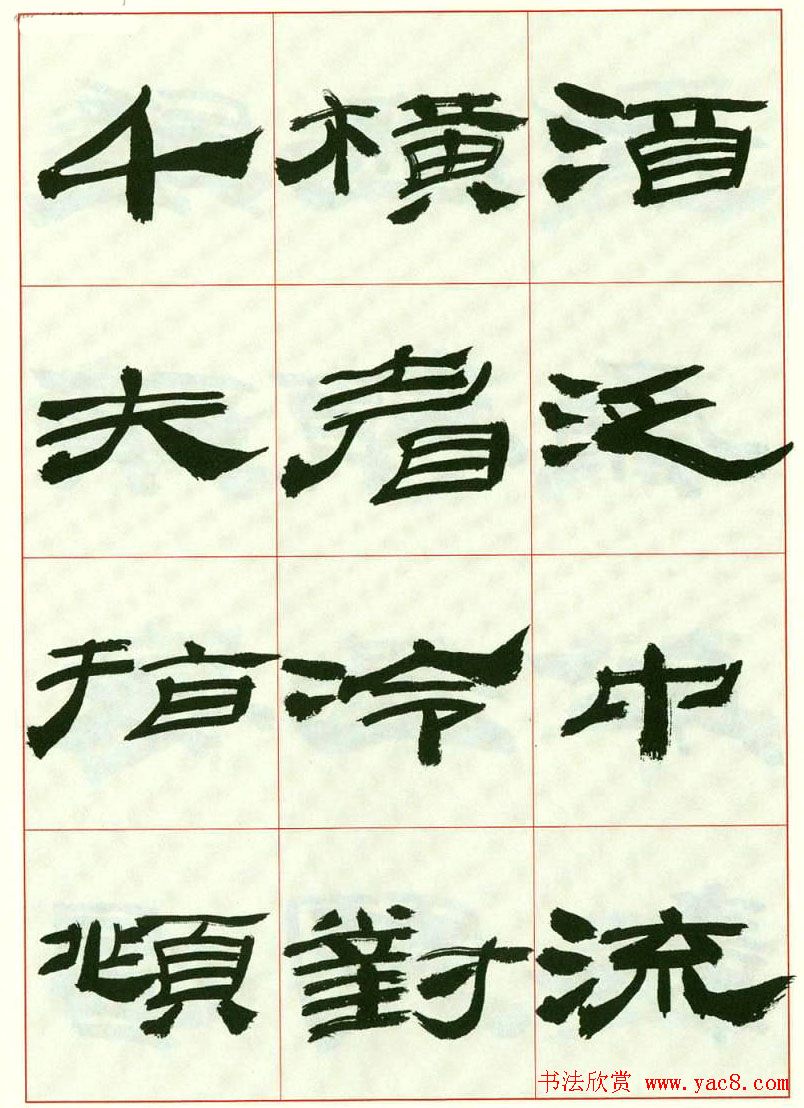 酒泛中流
横眉冷對
千夫指頫
书法欣赏 www.yac8.com